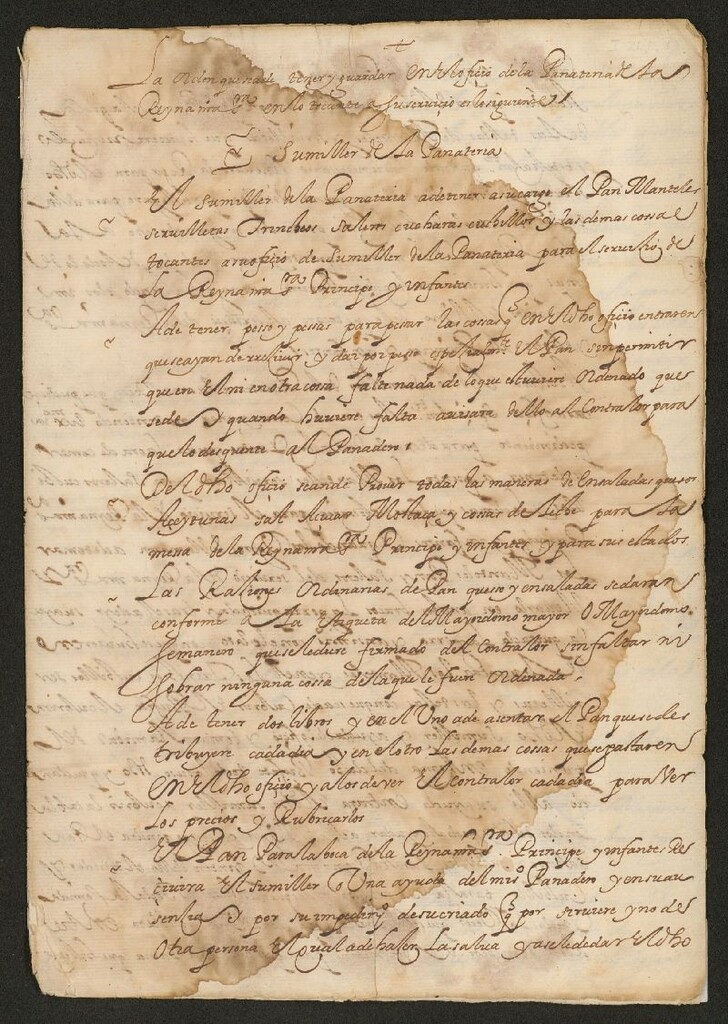 La orden que se a de tener y guardar en el oficio de la Panateria de la
Reyna nra sra en lo tocante a su servicio es la siguiente
Sumiller de la Panateria
El sumiller de la Panateria a de tener a su cargo el Pan Manteles
servilletas Trincheos salero cucharas cuchillos y las demas cossas
tocantes a su oficio de sumiller de la Panateria para el servicio de
la Reyna nra sra Principe y infantes
A de tener pesso y pessas para pesar las cossas q en el dho oficio entraren
que se ayan de reciuir y dar por pesso espeçialmte el Pan sin permitir
que en el ni en otra cosa falte nada de lo que estuuiere ordenado que
se de y quando huuiere falta auisara dello al Contralor para
que lo desquente al Panadero
Del dho oficio se an de Prouer todas las maneras de Ensaladas queso
Açeytunas sal Açucar Mostaça y cossas de leche para la
messa de la Reyna nra sra Principe y infantes y para sus estados
Las Raçiones ordenarias de Pan queso y ensalladas se daran
conforme a La etiqueta del Mayordomo mayor o Mayordomo
semanero que se le diere firmado del Contralor sin faltar ni
sobrar ninguna cossa de la que le fuere ordenada
A de tener dos libros y en el Uno a de asentar el Pan que se dis
tribuyere cada dia y en el otro las demas cossas que se gastaren
en el dho oficio y a los de ver el contralor cada dia para ver
los precios y Rubricarlos
El Pan Para la boca de la Reyna nra sra Principe y infantes Re
civira el sumiller o Una ayuda del mismo Panadero y en su au
sencia o por su impedimto de su criado q por sirviere y no de
otra persona el qual a de haçer la salua y a se le de dar el dho